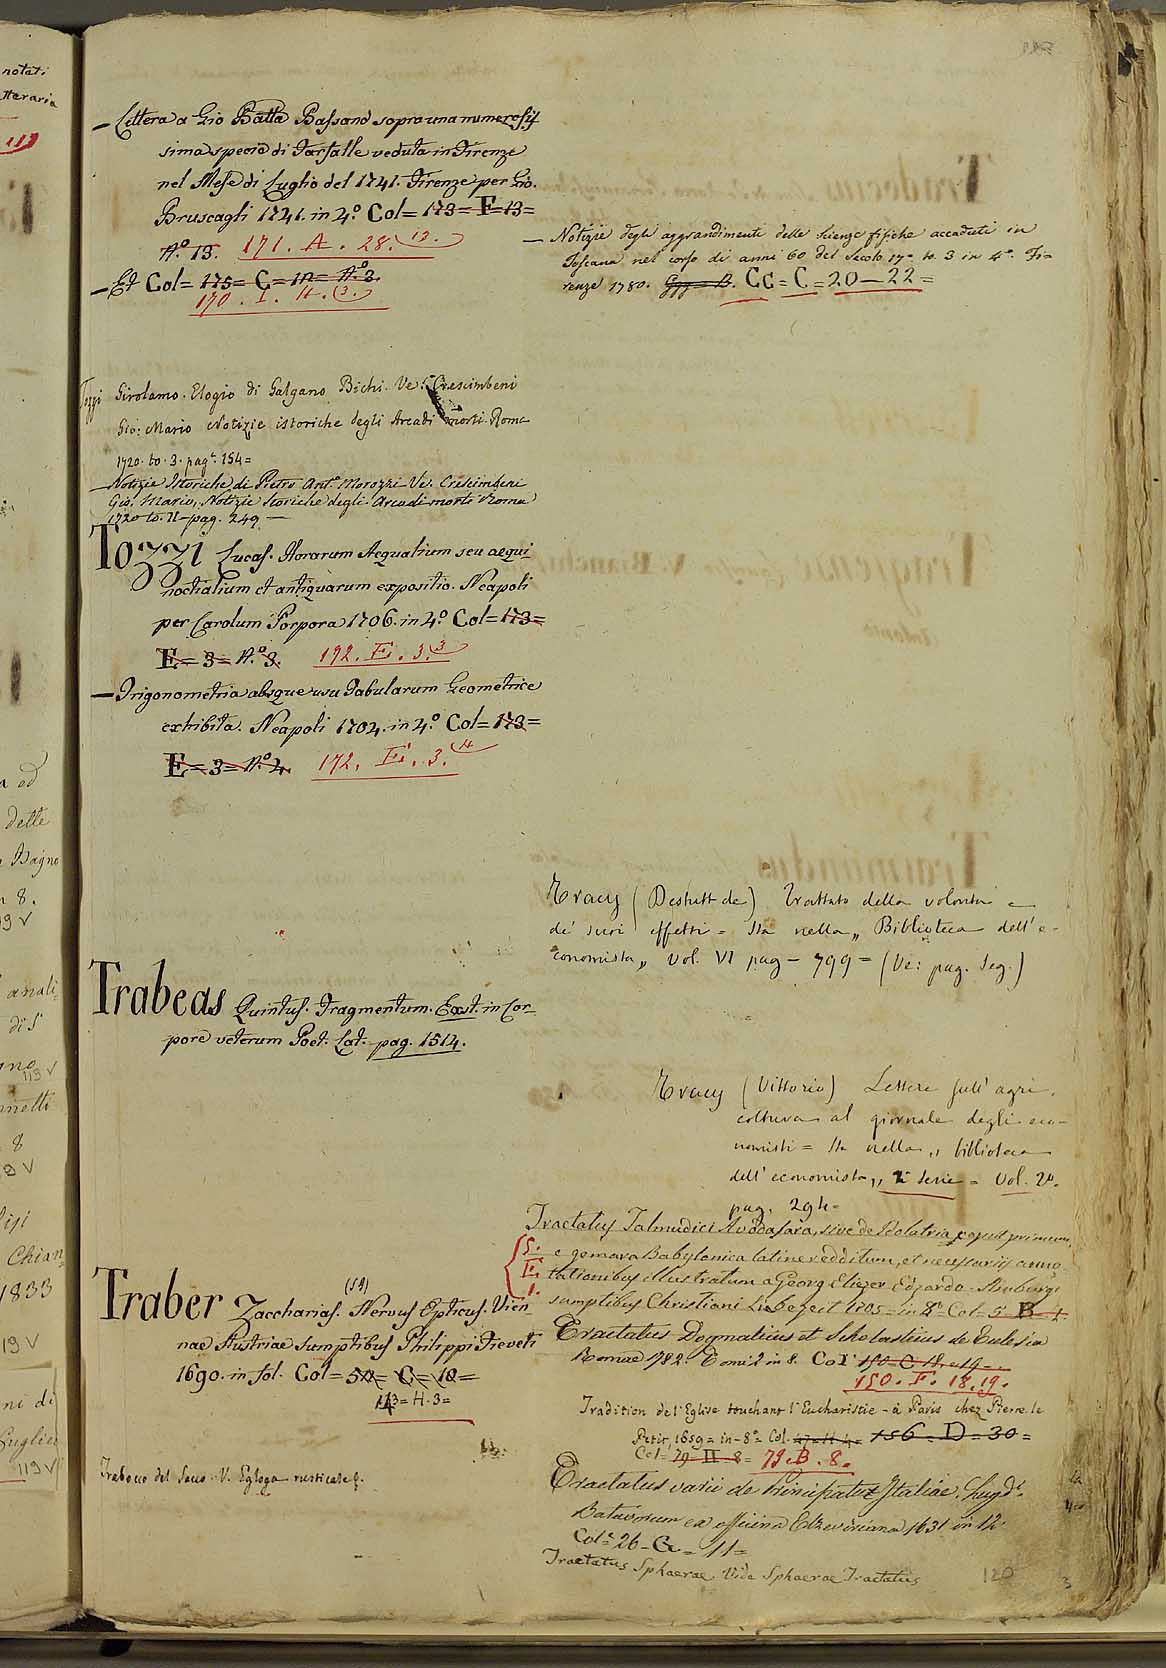 notati
tteraria
113
— Lettera a Gio Batta Bassand sopra una numerosis
sima specie di Farfalle veduta in Firenze
nel Mese di Luglio del 1741. Firenze per Gio.
Bruscagli 1741. in 4.º Col= 173= F=13=
N.º 13. 171. A. 28. 13.
— Et Col= 175= C= 12= N.º 3.
170. I. 4. (3.)
Tozzi Girolamo. Elogio di Galgano Bichi. Ve: Crescimbeni
Gio: Mario Notizie istoriche degli Arcadi morti. Roma
1720. to. 3. pagª. 154=
— Notizie Istoriche di Pietro Antº Morozzi. Ve. Crescimbeni
Gio. Mario, Notizie Storiche degli Arcadi morti Roma
1720 to. II. pag. 249 —
Tozzi Lucas. Horarum Aequalium seu aequi
noctialium et antiquarum expositio. Neapoli
per Carolum Porpora 1706. in 4.º Col= 173=
E= 3= N.º 3. 172. E. 3. 3
— Trigonometria absque usu Tabularum Geometrice
exhibita. Neapoli 1704. in 4.º Col= 173=
E= 3= N.º 4. 172. E. 3. 4
Trabeas Quintus. Fragmentum. Exst. in Cor
pore veterum Poet. Lat. pag. 1514.
(59)
Traber Zaccharias. Nervus Opticus. Vien
nae Austriae sumptibus Philippi Fieveti
1690. in fol. Col= 50= C= 10=
143= H. 3=
Trabocco del Sacco. V. Egloga rusticale
— Notizie degli aggrandimenti delle Scienze fisiche accaduti in
Toscana nel corso di anni 60 del Secolo 17º to. 3 in 4º. Fi=
renze 1780. CC= C= 20—22=
Tracy (Destutt de) Trattato della volontà e
de' suoi effetti = Sta nella „ Biblioteca dell' e-
conomista „ vol. VI pag — 799 = (Ve: pag. Seg.)
Tracy (Vittorio) Lettere sull' agri.
coltura al giornale degli eco-
nomisti = Sta nella „ biblioteca
dell' economista „ 2ª serie = Vol. 2º.
pag. 294.
Tractatus Talmudici Avoda sara, sive de Idolatria, caput primum,
5. e gemara Babylonica latine redditum, et necessariis anno
E. tationibus illustratum a Georg Eliezer Edzardo. Amburgi
1. sumptibus Christiani Liebezeit 1705= in 8º Col. 5 B 1.
Tractatus Dogmaticus et Scholasticus de Ecclesia
Romae 1782. Tomi 2 in 8. Col. 150 C 18. e 19
150. F. 18. 19.
Tradition de l'Eglise touchant l'Eucharistie - à Paris chez Pierre le
Petit, 1659= in-8º= Col. 156= D= 30=
Col= 79 H 8= 79. B. 8.
Tractatus varii de Principatib Italiae. Lugd.
Batavorum ex officina Elzeviriana 1631 in 12
Col= 26= G= 11=
Tractatus Sphaerae. Vide Sphaerae Tractatus
120